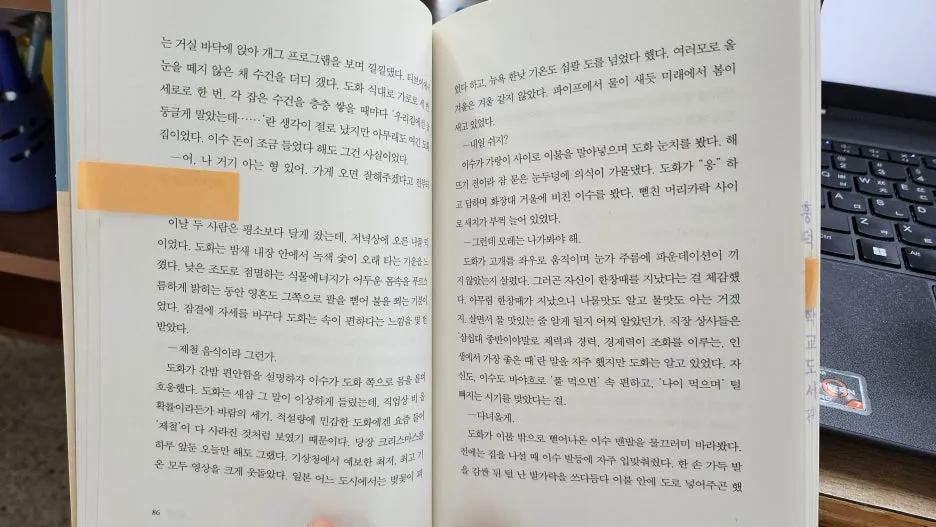 는 거실 바닥에 앉아 개그 프로그램을 보며 낄낄댔다.
눈을 떼지 않은 채 수건을 더디 갰다. 도화 식대로 가로로 세 번
세로로 한 번. 각 잡은 수건을 층층 쌓을 때마다 '우리집에선 늘
둥글게 말았는데……'란 생각이 절로 났지만 아무래도 여긴 도화
집이었다. 이수 돈이 조금 들었다 해도 그건 사실이었다.
—어, 나 거기 아는 형 있어. 가게 오면 잘해주겠다고 전부터
이날 두 사람은 평소보다 달게 갔는데, 저녁상에 오른 나물 덕
이었다. 도화는 밤새 내장 안에서 녹색 숯이 오래 타는 기운을 느
꼈다. 낮은 조도로 점멸하는 식물에너지가 어두운 몸속을 푸르스
름하게 밝히는 동안 영혼도 그쪽으로 팔을 뻗어 불을 쬐는 기분이
었다. 잠결에 자세를 바꾸다 도화는 속이 편하다는 느낌을 몇 번
받았다.
—제철 음식이라 그런가.
도화가 간밤 편안함을 설명하자 이수가 도화 쪽으로 몸을 돌며
호응했다. 도화는 새삼 그 말이 이상하게 들렸는데, 직업상 비 올
확률이라든가 바람의 세기, 적설량에 민감한 도화에겐 요즘 들어
'제철'이 다 사라진 것처럼 보였기 때문이다. 당장 크리스마스를
하루 앞둔 오늘만 해도 그랬다. 기상청에서 예보한 최저, 최고 기
온 모두 영상을 크게 웃돌았다. 일본 어느 도시에서는 벚꽃이 피
86
었다 하고, 뉴욕 한낮 기온도 십팔 도를 넘었다 했다. 여러모로 올
겨울은 겨울 같지 않았다. 파이프에서 물이 새듯 미래에서 봄이
새고 있었다.
—내일 쉬지?
이수가 가랑이 사이로 이불을 말아넣으며 도화 눈치를 봤다. 해
뜨기 전이라 잠 묻은 눈두덩에 의식이 가물댔다. 도화가 "응" 하
고 답하며 화장대 거울에 비친 이수를 봤다. 뻗친 머리카락 사이
로 새치가 부쩍 늘어 있었다.
—그런데 모레는 나가봐야 해.
도화가 고개를 좌우로 움직이며 눈가 주름에 파운데이션이 끼
지 않았는지 살폈다. 그러곤 자신이 한창때를 지났다는 걸 체감했
다. 아무렴 한창때가 지났으니 나물맛도 알고 물맛도 아는 거겠
지. 살면서 물 맛있는 줄 알게 될지 어찌 알았던가. 직장 상사들은
'삼십대 중반이야말로 체력과 경력, 경제력이 조화를 이루는, 인
생에서 가장 좋은 때'란 말을 자주 했지만 도화는 알고 있었다. 자
신도, 이수도 바야흐로 '풀 먹으면' 속 편하고, '나이 먹으며' 털
빠지는 시기를 맞았다는 걸.
—다녀올게.
도화가 이불 밖으로 삐어나온 이수 맨발을 물끄러미 바라봤다.
전에는 집을 나설 때 이수 발등에 자주 입맞춰줬다. 한 손 가득 발
을 감싼 뒤 털 난 발가락을 쓰다듬다 이불 안에 도로 넣어주곤 했